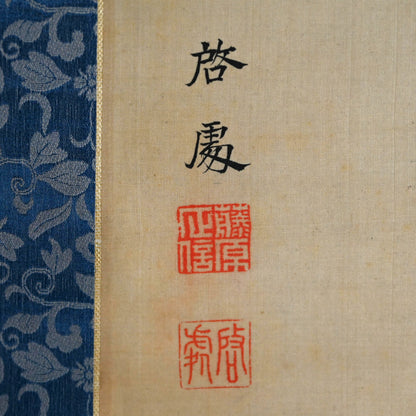 啓
處
藤原正信
啓處